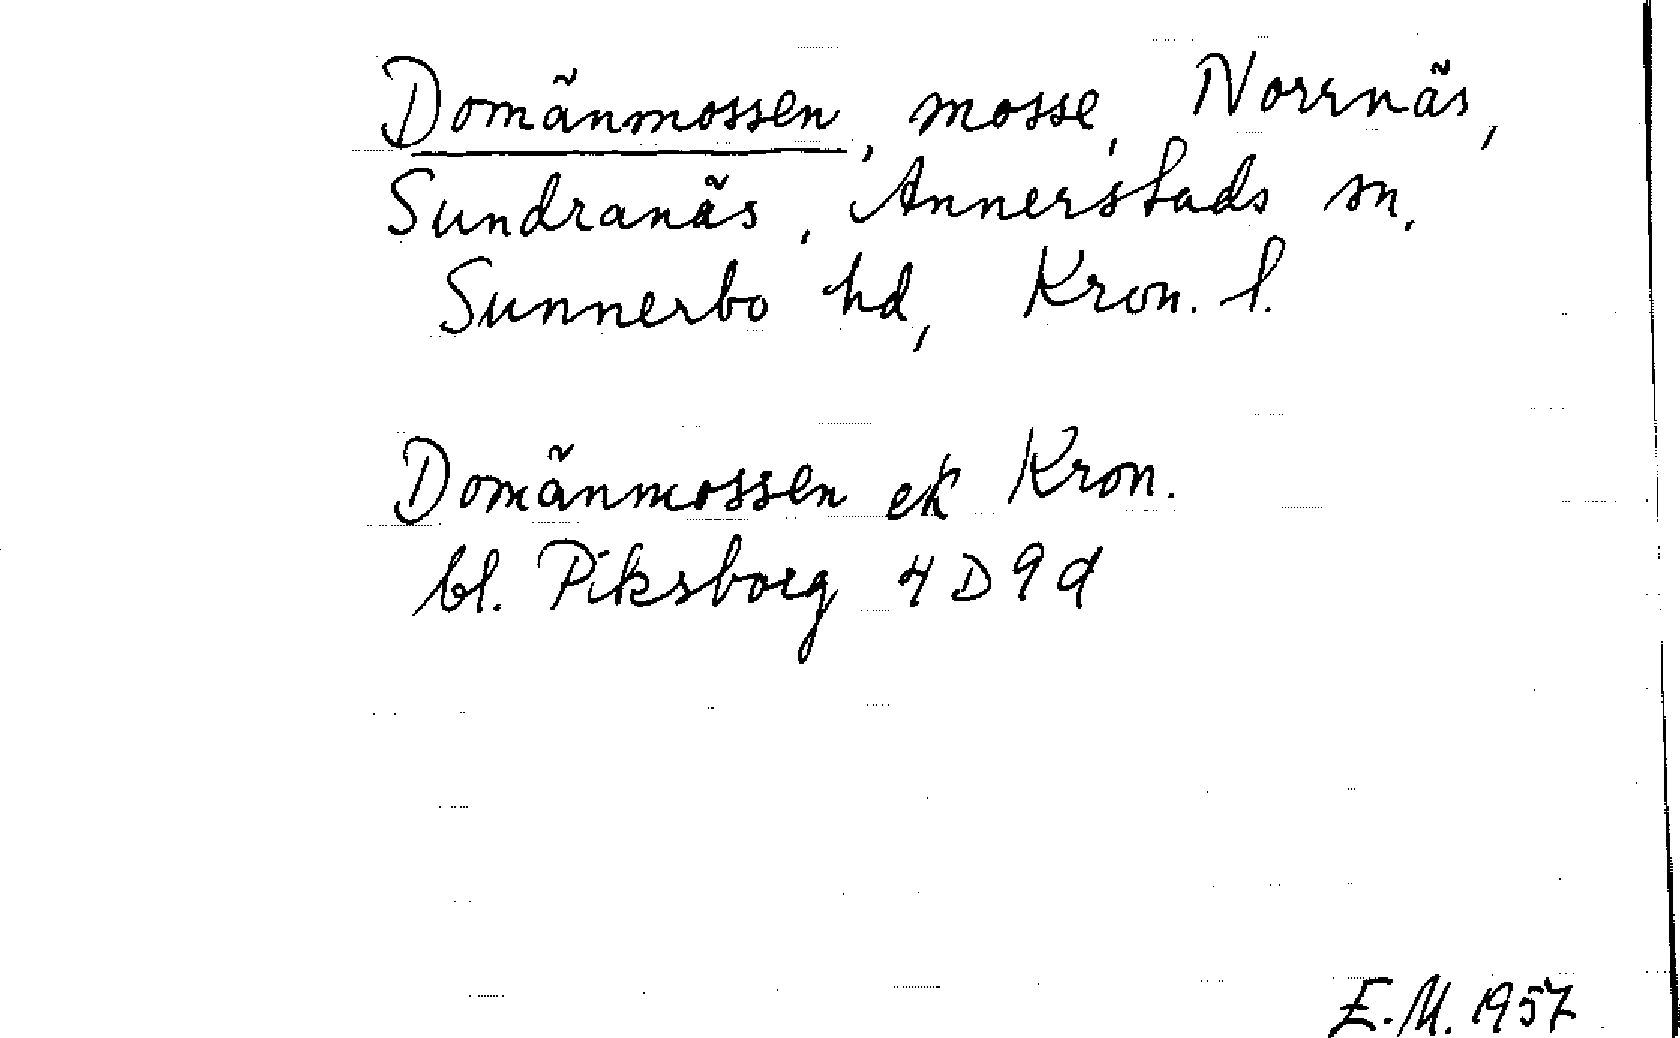 Domänmossen, mosse, Norrnäs,
Sundranäs, Annerstads sn,
Sunnerbo hd, Kron. l.
Domänmossen ek Kron.
bl. Piksborg 4D9d
E.M. 1957